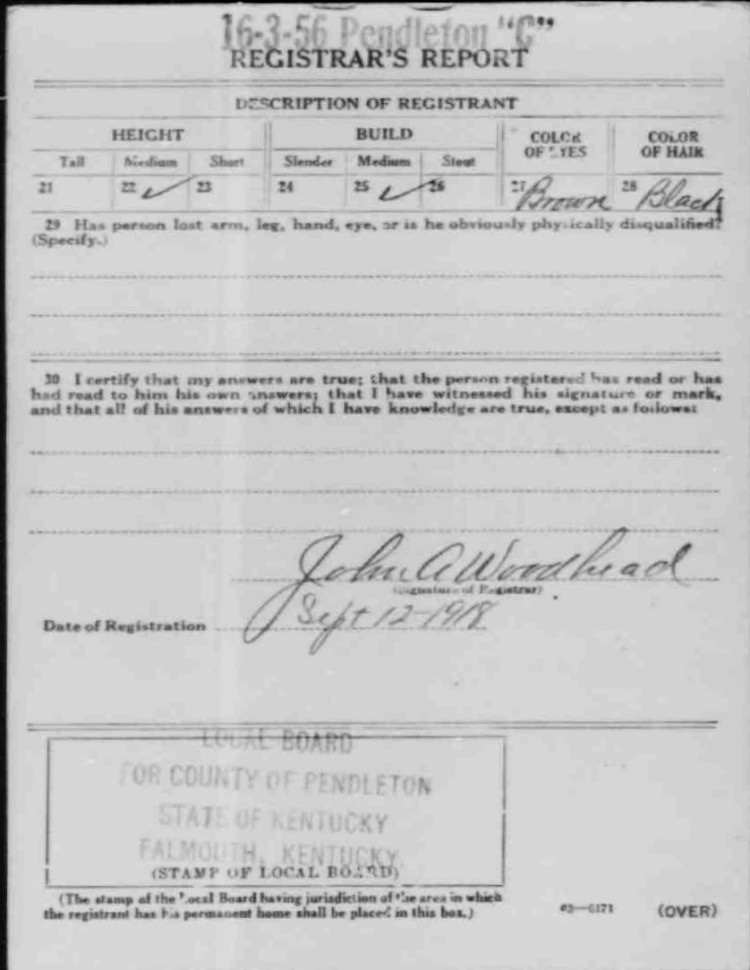 16-3-56 Pendleton "C"
REGISTRAR'S REPORT
DESCRIPTION OF REGISTRANT
HEIGHT BUILD COLOR OF EYES COLOR OF HAIR
Tall Medium Short Slender Medium Stout
21 22 ✓ 23 24 25 ✓ 26 27 Brown 28 Black
29 Has person lost arm, leg, hand, eye, or is he obviously physically disqualified?
(Specify.)
30 I certify that my answers are true; that the person registered has read or has
had read to him his own answers; that I have witnessed his signature or mark,
and that all of his answers of which I have knowledge are true, except as follows:
John A Woodhead
(Signature of Registrar)
Date of Registration Sept 12-1918
LOCAL BOARD
FOR COUNTY OF PENDLETON
STATE OF KENTUCKY
FALMOUTH, KENTUCKY
(STAMP OF LOCAL BOARD)
(The stamp of the Local Board having jurisdiction of the area in which
the registrant has his permanent home shall be placed in this box.)
(OVER)